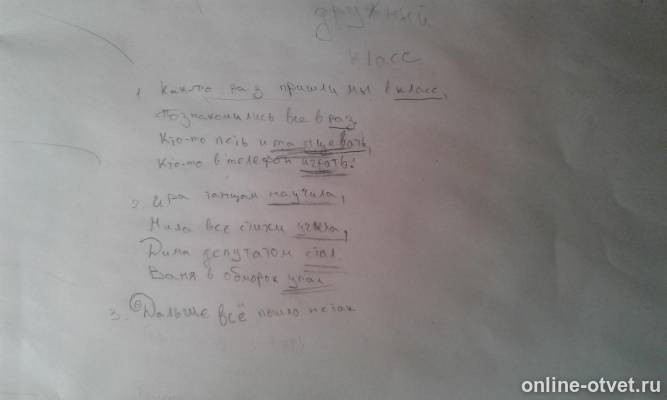 дружный
класс
1. Как-то раз пришли мы в класс,
Познакомились все в раз
Кто-то петь и танцевать,
Кто-то в телефон играть.
2. Ира танцам научила,
Мила все стихи
Дима депутатом стал.
Ваня в обморок упал
3. Дальше всё пошло не так
online-otvet.ru